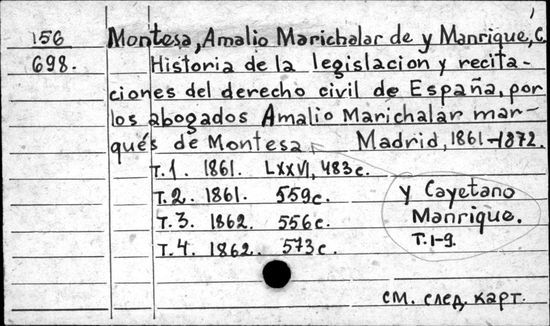 156 Montesa, Amalio Marichalar de y Manrique, C.
698. Historia de la legislacion y recita-
ciones del derecho civil de España, por
los abogados Amalio Marichalar mar-
qués de Montesa Madrid, 1861-1872.
T.1. 1861. LXXVI, 483c.
T.2. 1861. 559c.
T.3. 1862. 556c.
T.4. 1862. 573c.
y Cayetano
Manrique.
T.1-9.
см. след. карт.